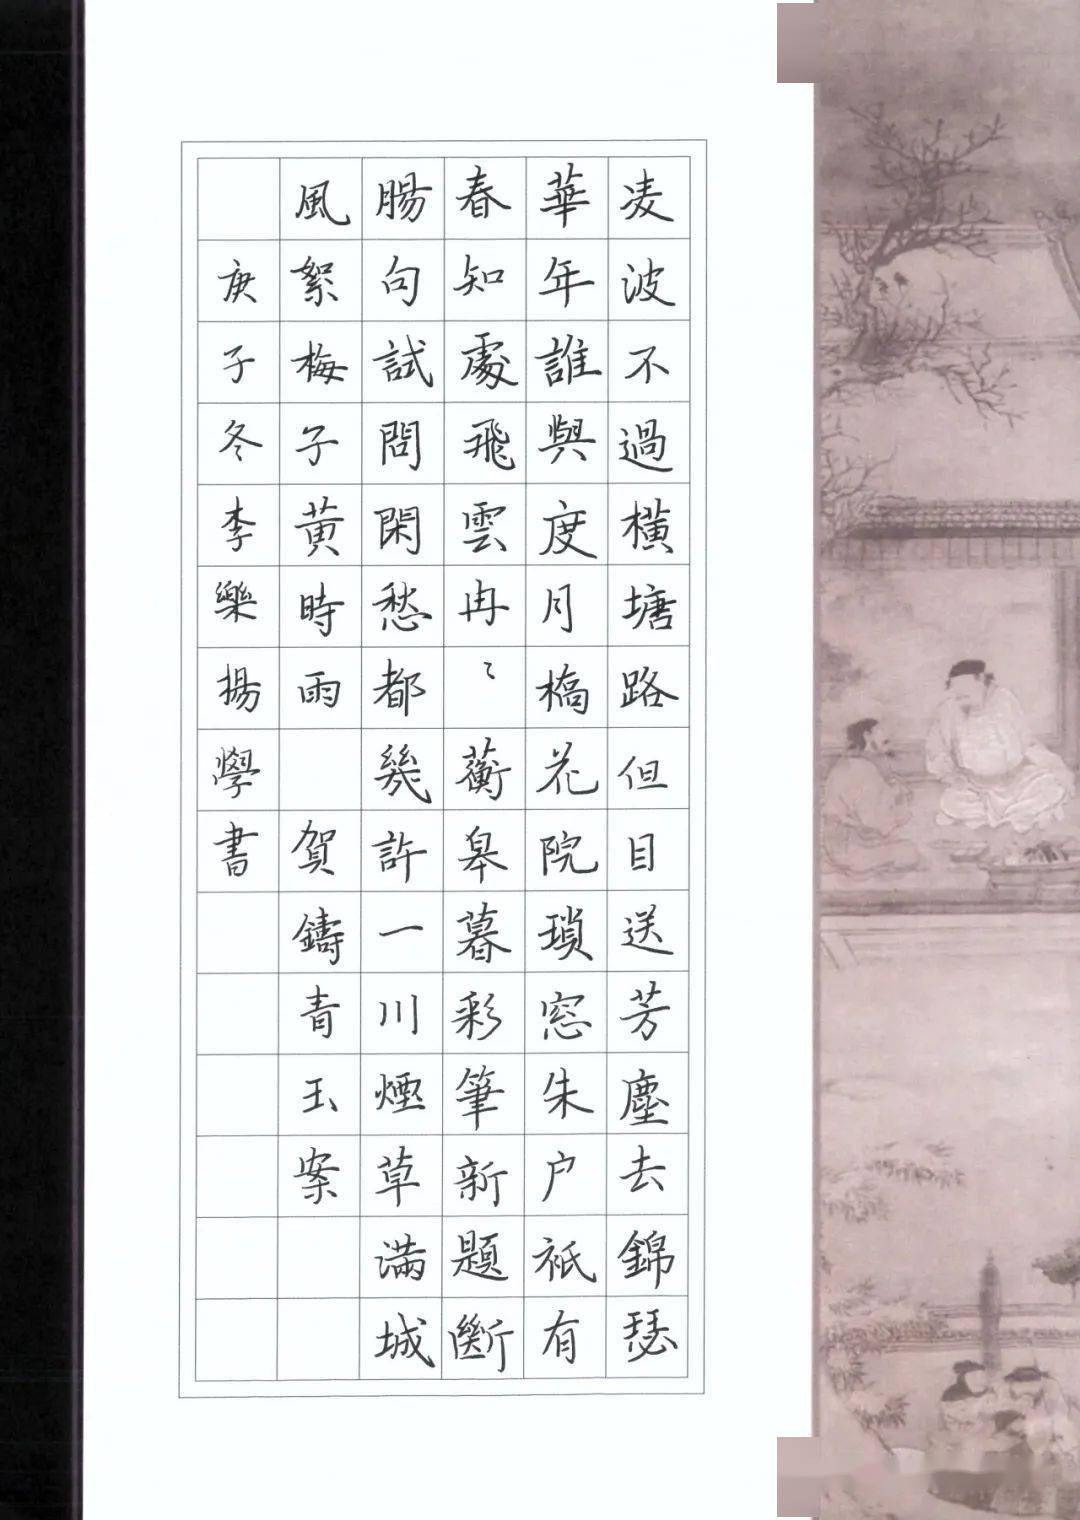 凌波不過橫塘路但目送芳塵去錦瑟
華年誰與度月橋花院瑣窓朱户祇有
春知處飛雲冉〻蘅皋暮彩筆新題斷
腸句試問閑愁都幾許一川煙草满城
風絮梅子黄時雨 賀鑄青玉案
庚子冬李樂揚學書